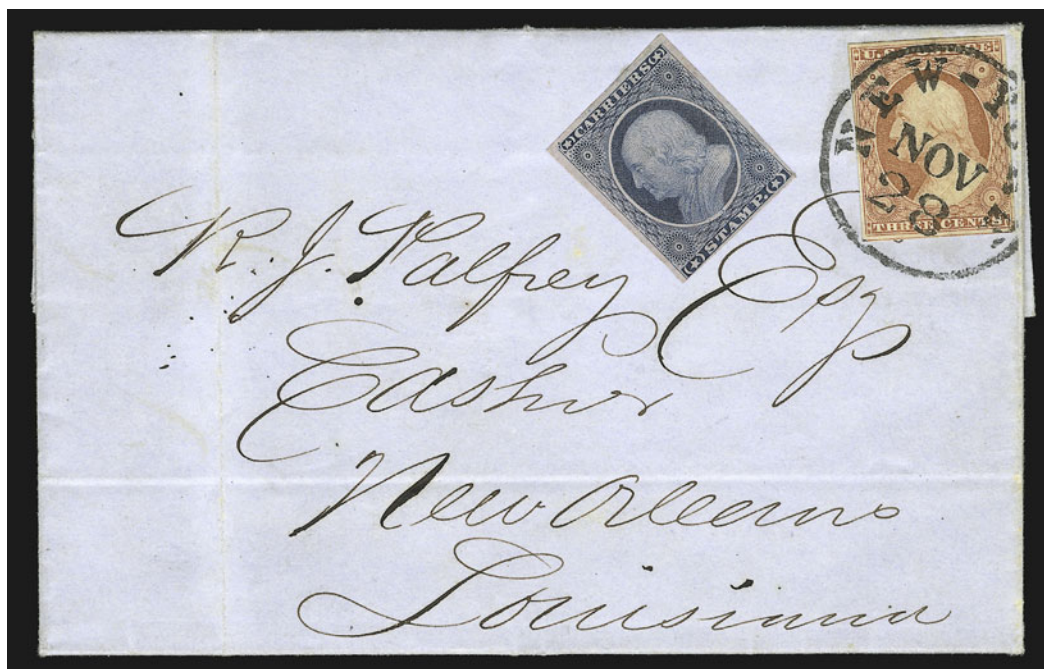 CARRIERS
STAMP.
U.S. POSTAGE
THREE CENTS
NEW-YORK
NOV
28
R. J. Palfrey Esq
Cashier
New Orleans
Louisiana